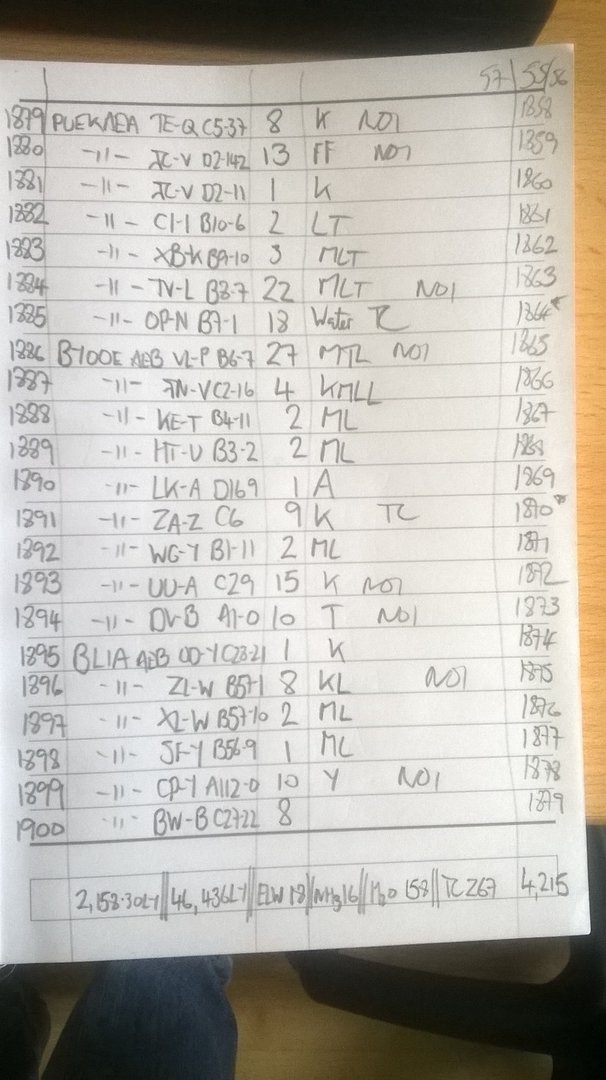 57 | 55/56
1879 PUEKAEA TE-Q C5-37 8 K NO1 1858
1880 -11- JC-V D2-142 13 FF NO1 1859
1881 -11- JC-V D2-11 1 K 1860
1882 -11- CI-I B10-6 2 LT 1861
1883 -11- XB-K B9-10 3 MLT 1862
1884 -11- TV-L B8-7 22 MLT NO1 1863
1885 -11- OP-N B7-1 18 Water TC 1864
1886 B-100E AEB VL-P B6-7 27 MTL NO1 1865
1887 -11- JN-V C2-16 4 KMLL 1866
1888 -11- KE-T B4-11 2 ML 1867
1889 -11- HT-U B3-2 2 ML 1868
1890 -11- LK-A D169 1 A 1869
1891 -11- ZA-Z C6 9 K TC 1870
1892 -11- WG-Y B1-11 2 ML 1871
1893 -11- UU-A C29 15 K NO1 1872
1894 -11- DV-B A1-0 10 T NO1 1873
1895 BLIA AEB OD-Y C23-21 1 K 1874
1896 -11- ZL-W B57-1 8 KL NO1 1875
1897 -11- XL-W B57-10 2 ML 1876
1898 -11- JF-Y B56-9 1 ML 1877
1899 -11- CP-Y A112-0 10 Y NO1 1878
1900 -11- BW-B C27-22 8 1879
2,158.30LY || 46,436LY || ELW 18 || NH3 16 || H2O 158 || TC 267 4,215